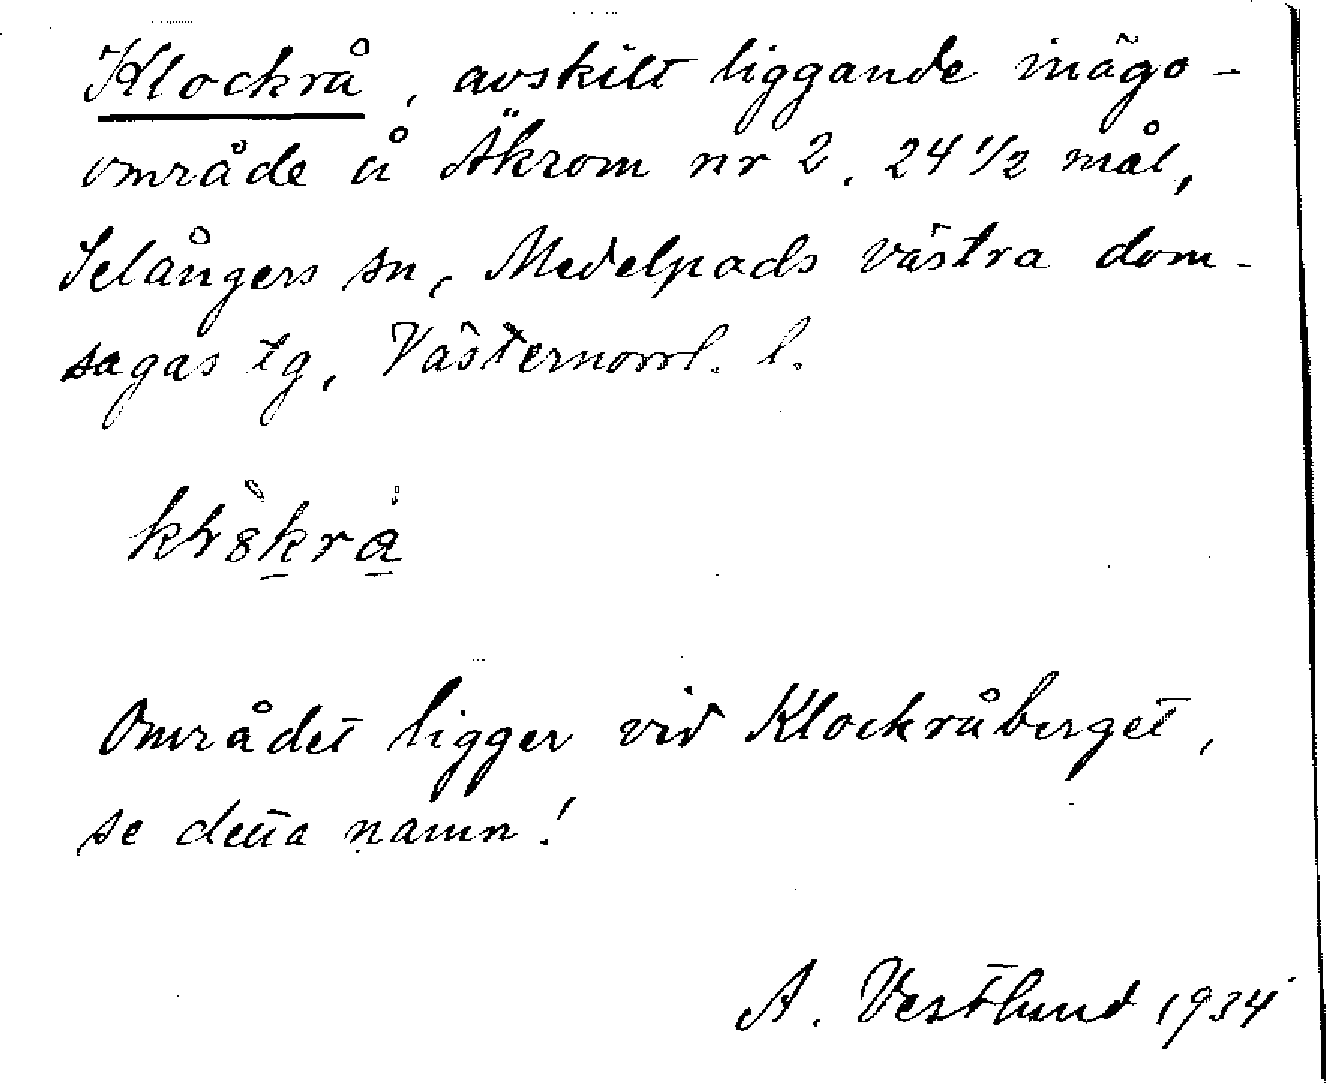 Klockrå, avskilt liggande inägo-
område å Äkrom nr 2. 24 1/2 mål,
Selångers sn, Medelpads västra dom-
sagas tg, Västernorrl. l.
Området ligger vid Klockråberget,
se detta namn!
A. Vestlund 1934